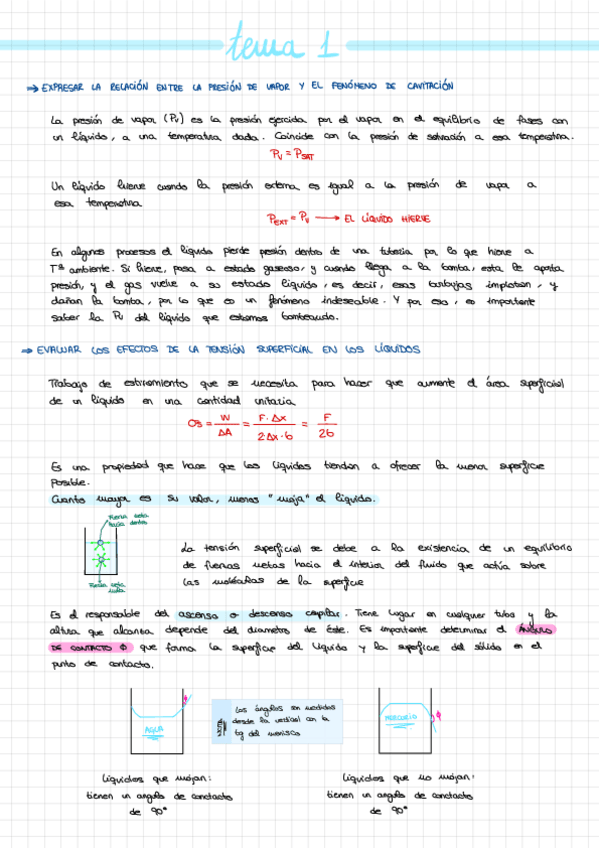 tema 1
⇒ EXPRESAR LA RELACIÓN ENTRE LA PRESIÓN DE VAPOR Y EL FENÓMENO DE CAVITACIÓN
La presión de vapor (Pv) es la presión ejercida por el vapor en el equilibrio de fases con
un líquido, a una temperatura dada. Coincide con la presión de saturación a esa temperatura.
Pv = PSAT
Un líquido hierve cuando la presión externa es igual a la presión de vapor a
esa temperatura
PEXT = Pv → EL LÍQUIDO HIERVE
En algunos procesos el líquido pierde presión dentro de una tubería por lo que hierve a
Tª ambiente. Si hierve, pasa a estado gaseoso, y cuando llega a la bomba, esta le aporta
presión, y el gas vuelve a su estado líquido, es decir, esas burbujas implotan, y
dañan la bomba, por lo que es un fenómeno indeseable. Y por eso, es importante
saber la Pv del líquido que estamos bombeando.
⇒ EVALUAR LOS EFECTOS DE LA TENSIÓN SUPERFICIAL EN LOS LÍQUIDOS
Trabajo de estiramiento que se necesita para hacer que aumente el área superficial
de un líquido en una cantidad unitaria
σs = W / ΔA = F·Δx / 2·Δx·b = F / 2b
Es una propiedad que hace que los líquidos tiendan a ofrecer la menor superficie
posible.
Cuanto mayor es su valor, menos "moja" el líquido.
Fuerza neta
hacia dentro
La tensión superficial se debe a la existencia de un equilibrio
de fuerzas netas hacia el interior del fluido que actúa sobre
las moléculas de la superficie
Fuerza neta
nula
Es el responsable del ascenso o descenso capilar. Tiene lugar en cualquier tubo y la
altura que alcanza depende del diámetro de éste. Es importante determinar el ÁNGULO
DE CONTACTO Φ que forma la superficie del líquido y la superficie del sólido en el
punto de contacto.
Φ
AGUA
NOTA
Los ángulos son medidos
desde la vertical con la
tg del menisco
MERCURIO
Φ
Líquidos que mojan:
tienen un ángulo de contacto
de 90°
Líquidos que no mojan:
tienen un ángulo de contacto
de 90°